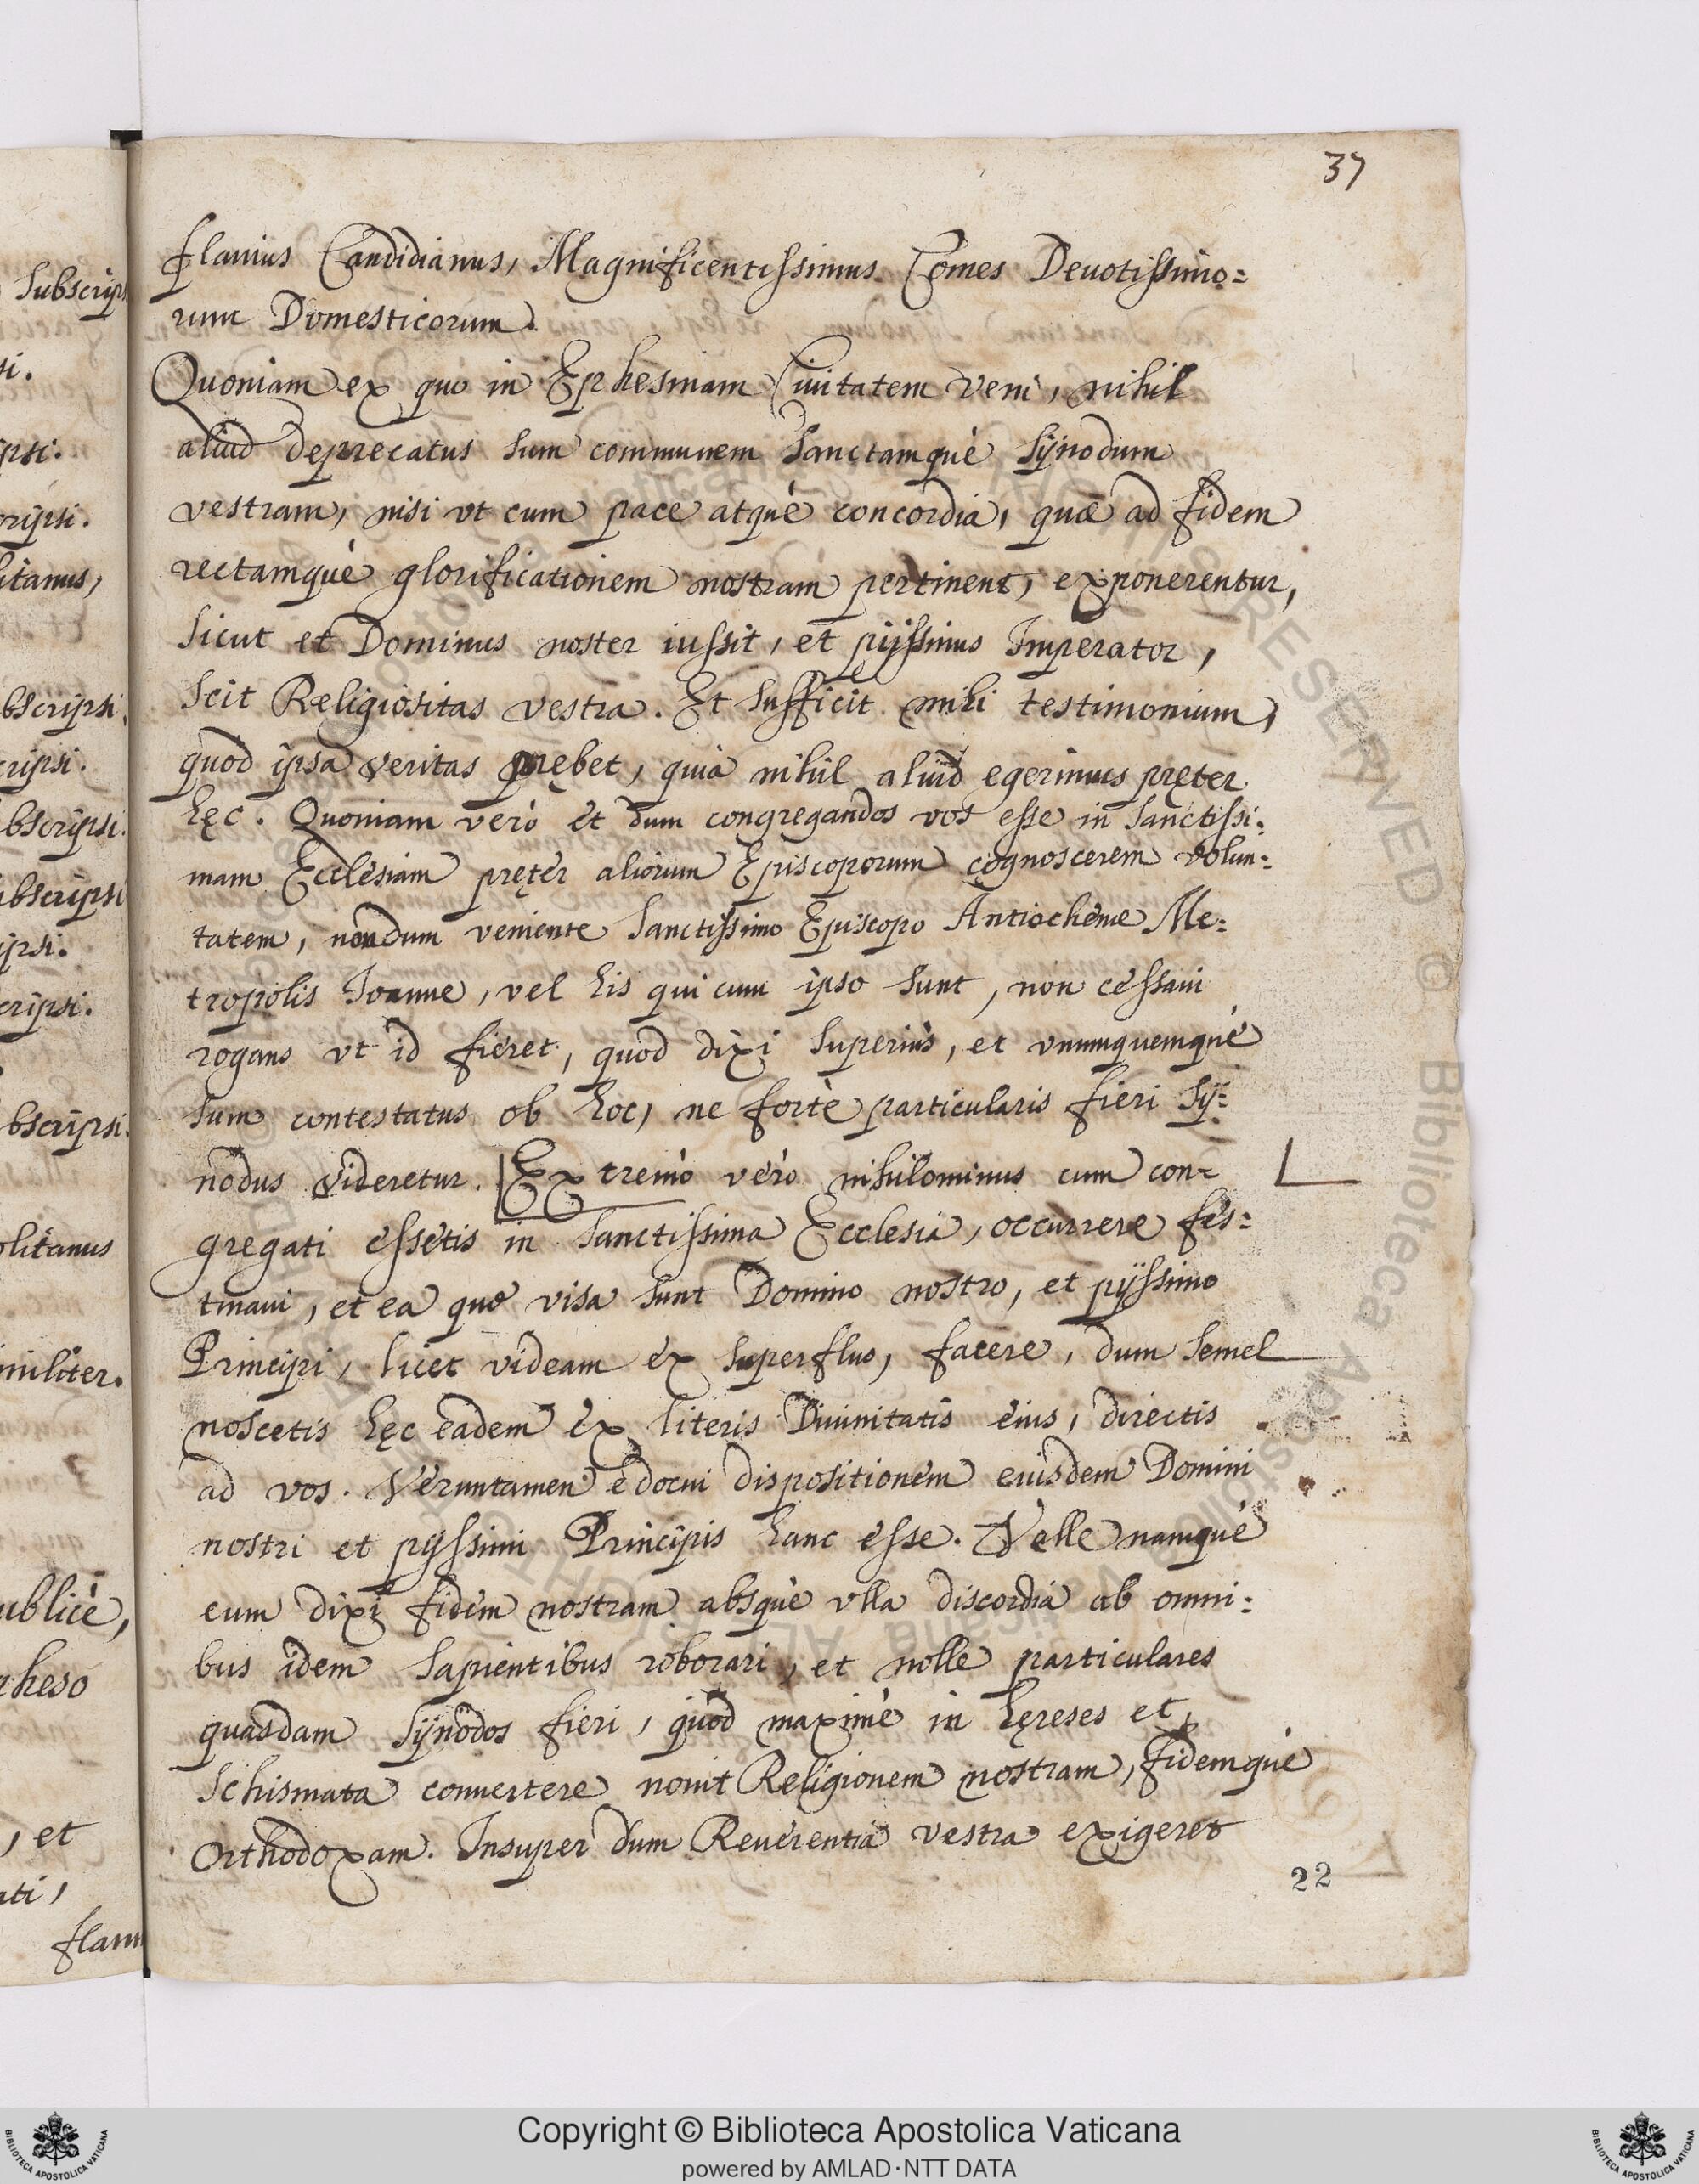 37
Flauius Candidianus, Magnificentissimus Comes Deuotissimo=
rum Domesticorum.
Quoniam ex quo in Ephesinam Ciuitatem veni, nihil
aliud deprecatus sum communem Sanctamquè Sÿnodum
vestram, nisi vt cum pace atquè concordia, quæ ad fidem
rectamquè glorificationem nostram pertinent, exponerentur,
sicut et Dominus noster iussit, et pijssimus Imperator,
scit Religiositas vestra. Et sufficit mihi testimonium,
quod ipsa veritas prębet, quia nihil aliud egerimus pręter
hęc. Quoniam verò et dum congregandos vos esse in Sanctissi=
mam Ecclesiam pręter aliorum Episcoporum cognoscerem volun=
tatem, nondum veniente Sanctissimo Episcopo Antiochenę Me=
tropolis Ioanne, vel his qui cum ipso sunt, non cessaui
rogans vt id fieret, quod dixi superiùs, et vnumquemquè
sum contestatus ob hoc, ne fortè particularis fieri Sÿ=
nodus videretur. Extremò verò nihilominus cum con=
gregati essetis in Sanctissima Ecclesia, occurrere fes=
tinaui, et ea quę visa sunt Domino nostro, et pijssimo
Principi, licet videam ex superfluo, facere, dum semel
noscetis hęc eadem ex literis Diuinitatis eius, directis
ad vos. Veruntamen edocui dispositionem eiusdem Domini
nostri et pijssimi Principis hanc esse. Velle namquè
eum dixi fidem nostram absquè vlla discordia ab omni=
bus idem sapientibus roborari, et nolle particulares
quasdam Sÿnodos fieri, quod maximè in hęreses et
Schismata conuertere nouit Religionem nostram, fidemquè
Orthodoxam. Insuper dum Reuerentia vestra exigeret
22
subscrips
si.
ipsi.
cripsi.
litanus,
bscripsi.
cripsi.
bscripsi.
bscripsi
ipsi.
cripsi.
bscripsi.
olitanus
militer.
ublicè,
pheso
, et
ati,
flaui
Copyright © Biblioteca Apostolica Vaticana
powered by AMLAD·NTT DATA